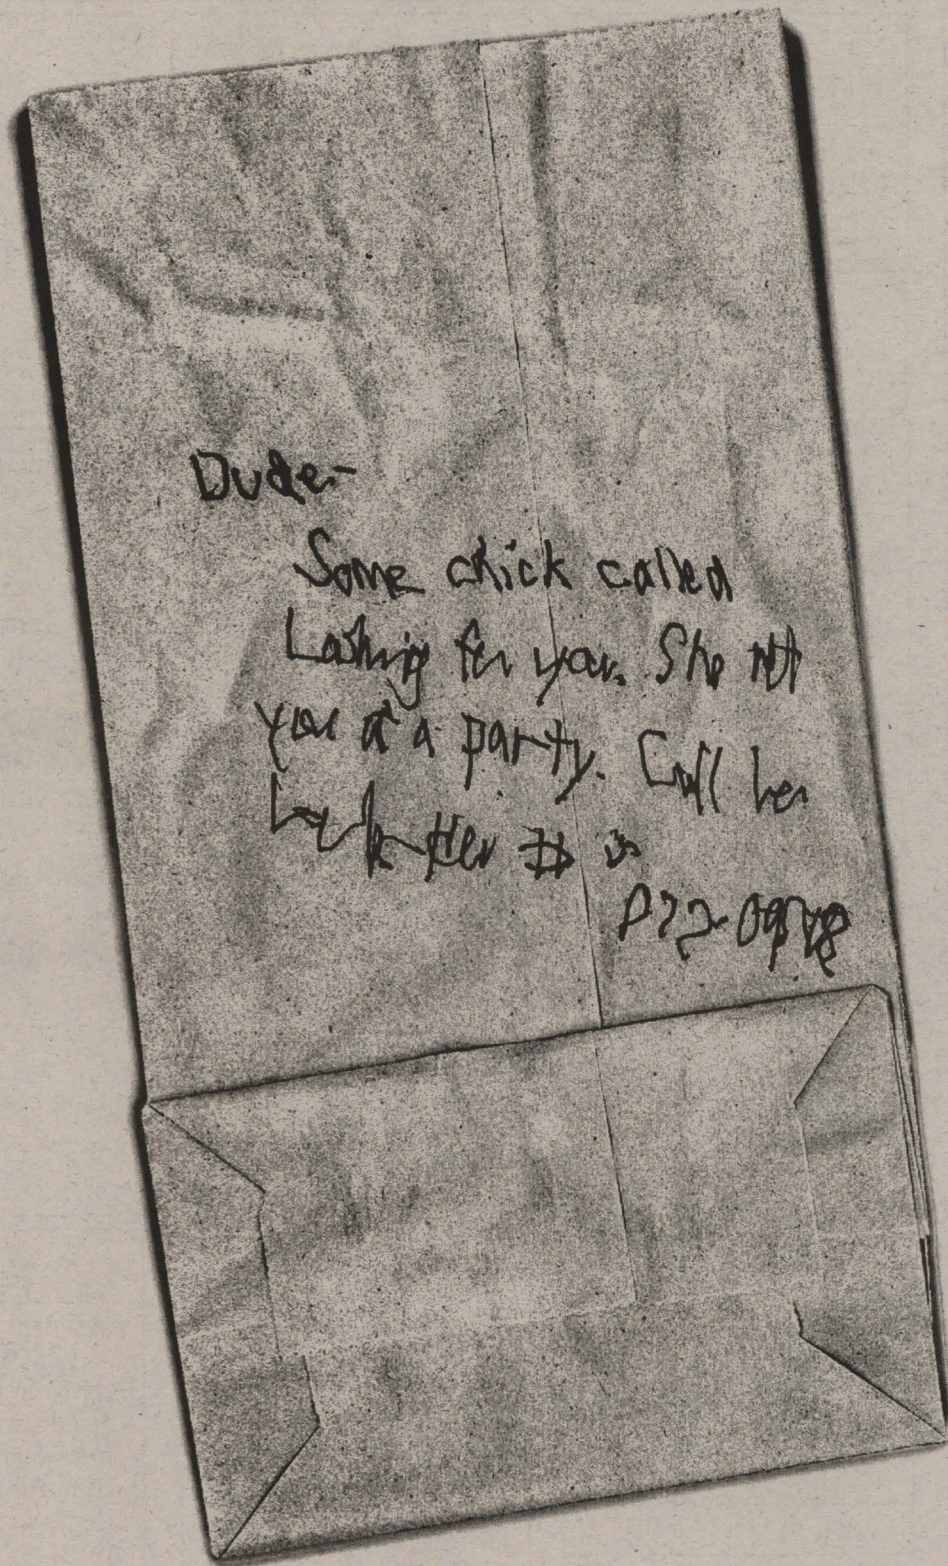 Dude-
Some chick called
Looking for you. She met
you at a party. Call her
back. Her # is